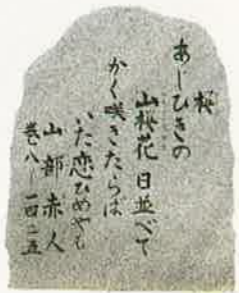 桜
あしひきの
山桜花日並べて
かく咲きたらば
いた恋ひめやも
山部赤人
巻八ー一四二五